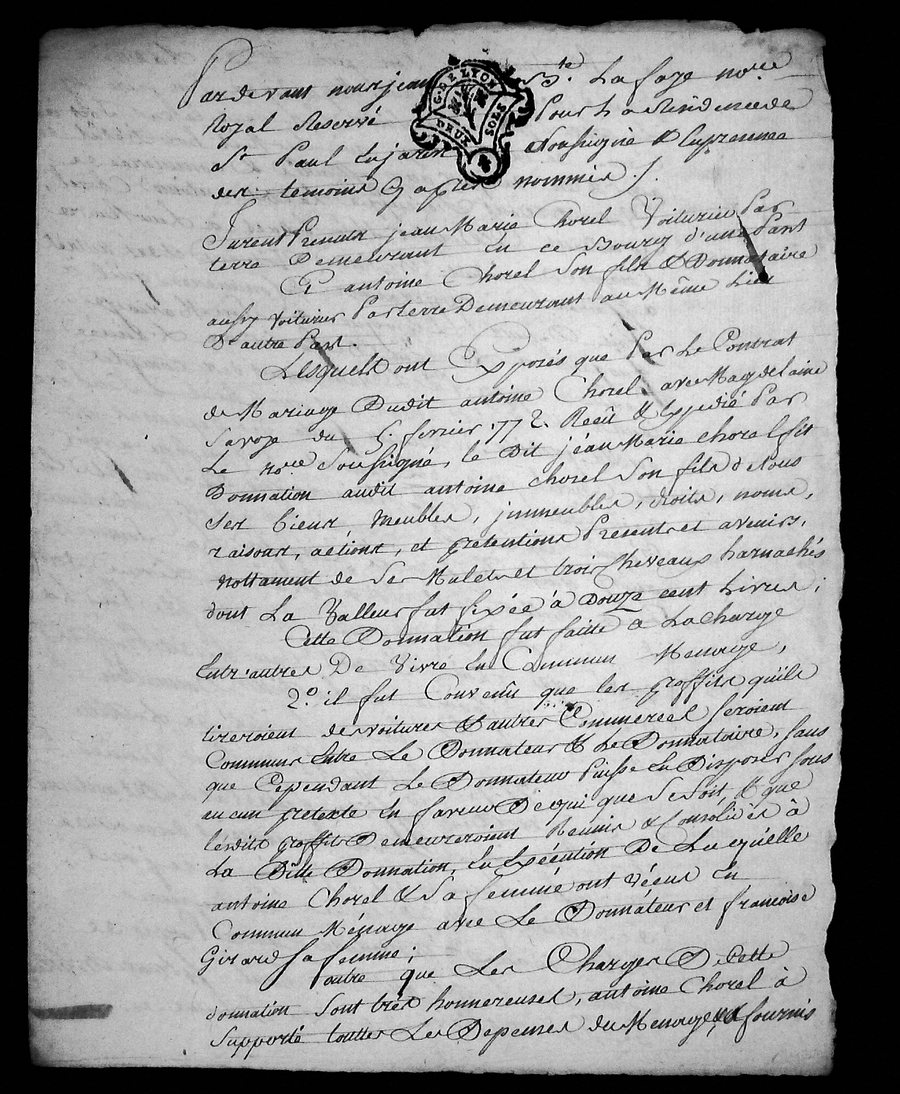 Pardevant nous jean B.te La faye no.re
Royal Reservé Pour La Residence de
S.t Paul En jarest Soussigné & En presence
des temoins Cy apres nommés /.
G. DE LYON
DEUX SOLS
furent Presents jean Marie Chorel Voiturier Par
terre Demeurant En ce Bourg d'une Part
Et antoine Chorel Son fils & Donnataire
aussy Voiturier Par terre Demeurant au Même Lieu
D'autre Part.
Lesquels ont Exposés que Par Le Contrat
de Mariage Dudit antoine Chorel avec Magdelaine
Savoye du 5. fevrier 1772. Recût & Expedié Par
Le no.re Soussigné, le Dit jean Marie Chorel fit
Donnation audit antoine chorel Son fils de tous
ses biens meubles, jmmeubles, droits, noms,
raisons, actions, et pretentions Presents et avenirs,
nottament de Ses Mulets et trois Cheveaux harnachés
dont La Valleur fut fixée à Douze cent Livres;
Cette Donnation fut faite à La charge
Entr'autres De Vivre En Commun Menage,
2.o il fut Convenû que les proffits qu'ils
tireroient des voitures & autres Commerces seroient
Communs Entre Le Donnateur & Le Donnataire, sans
que Cependant Le Donnateur Puisse En Disposer sous
aucun pretexte En faveur De qui que Se Soit, & que
lesdits proffits Demeureroient Reunis & Consolidés à
La Ditte Donnation, En Exécution De Laquelle
antoine Chorel & Sa femme ont Vécus En
Commun Ménage avec Le Donnateur et françoise
Girard sa femme;
outre que Les Charges De Cette
donnation Sont très honnereuses, antoine Chorel à
Supporté touttes Les Depenses du Menage & fournis